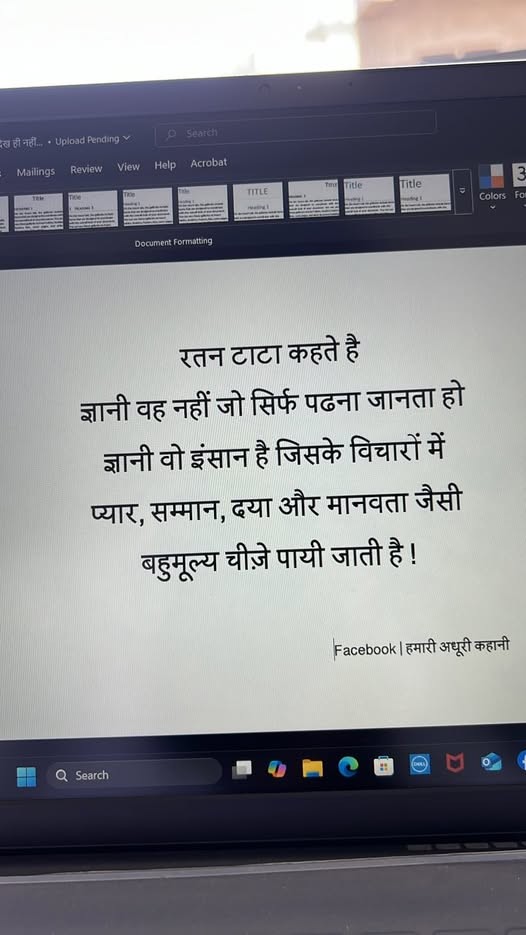 देख ही नहीं... • Upload Pending
Search
Mailings Review View Help Acrobat
Title Title Title Title TITLE Title Title Title
Colors
Document Formatting
रतन टाटा कहते है
ज्ञानी वह नहीं जो सिर्फ पढना जानता हो
ज्ञानी वो इंसान है जिसके विचारों में
प्यार, सम्मान, दया और मानवता जैसी
बहुमूल्य चीज़े पायी जाती है !
Facebook | हमारी अधूरी कहानी
Search
DELL